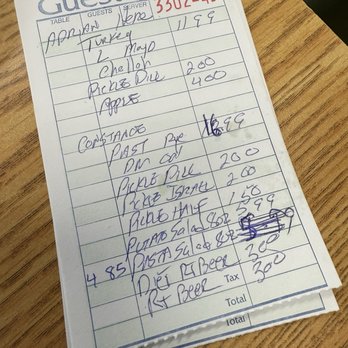 Guest
TABLE GUESTS SERVER 3302
ADRIAN Here
Turkey 11 99
L Mayo
Challah
Pickle Dill 2 00
Apple 4 00
CONSTANCE
PAST Rye 16 99
Pickle Dill 2 00
Pickle Israel 2 00
Pickle Half 1 50
Potato Salad 8oz 3 99
Pasta Salad 8oz
4 85 Diet Rt Beer 3 00
Rt Beer Tax 3 00
Total
Total